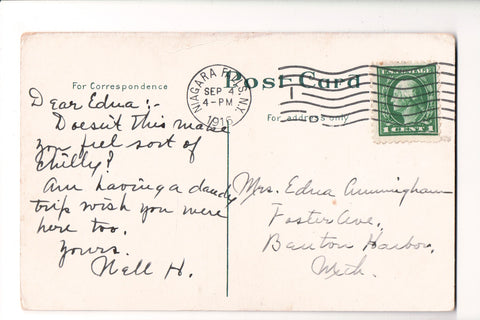 Post Card
For Correspondence
For address only
NIAGARA FALLS. N.Y.
SEP 4
4-PM
1915
1 CENT 1
Dear Edna:-
Doesn't this make
you feel sort of
Chilly?
Am having a dandy
trip wish you were
here too.
Yours.
Nell H.
Mrs. Edna Cunningham
Foster Ave.
Benton Harbor,
Mich.